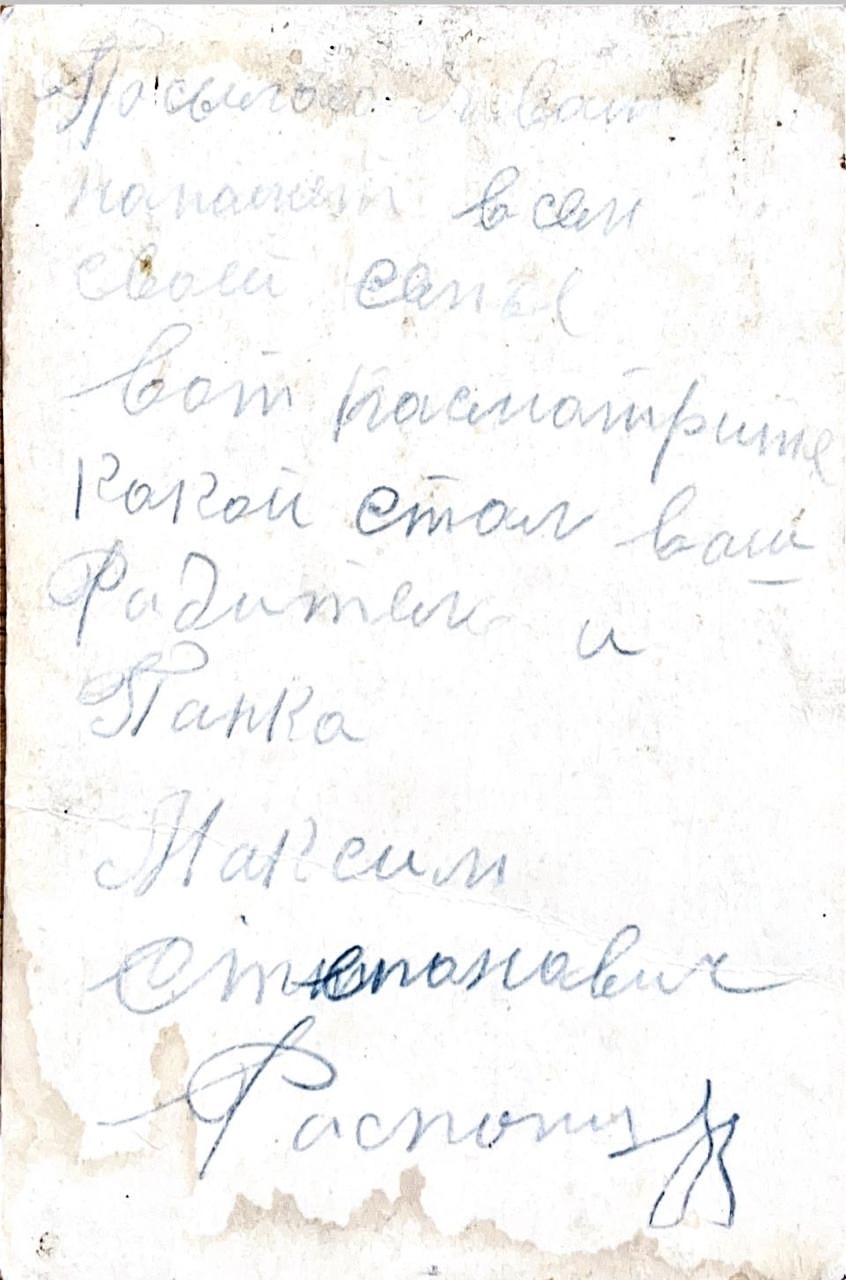 Посылаю я вам
на память всей
своей семье
вот пасматрите
какой стал ваш
Радитель и
Папка
Максим
Степанавич